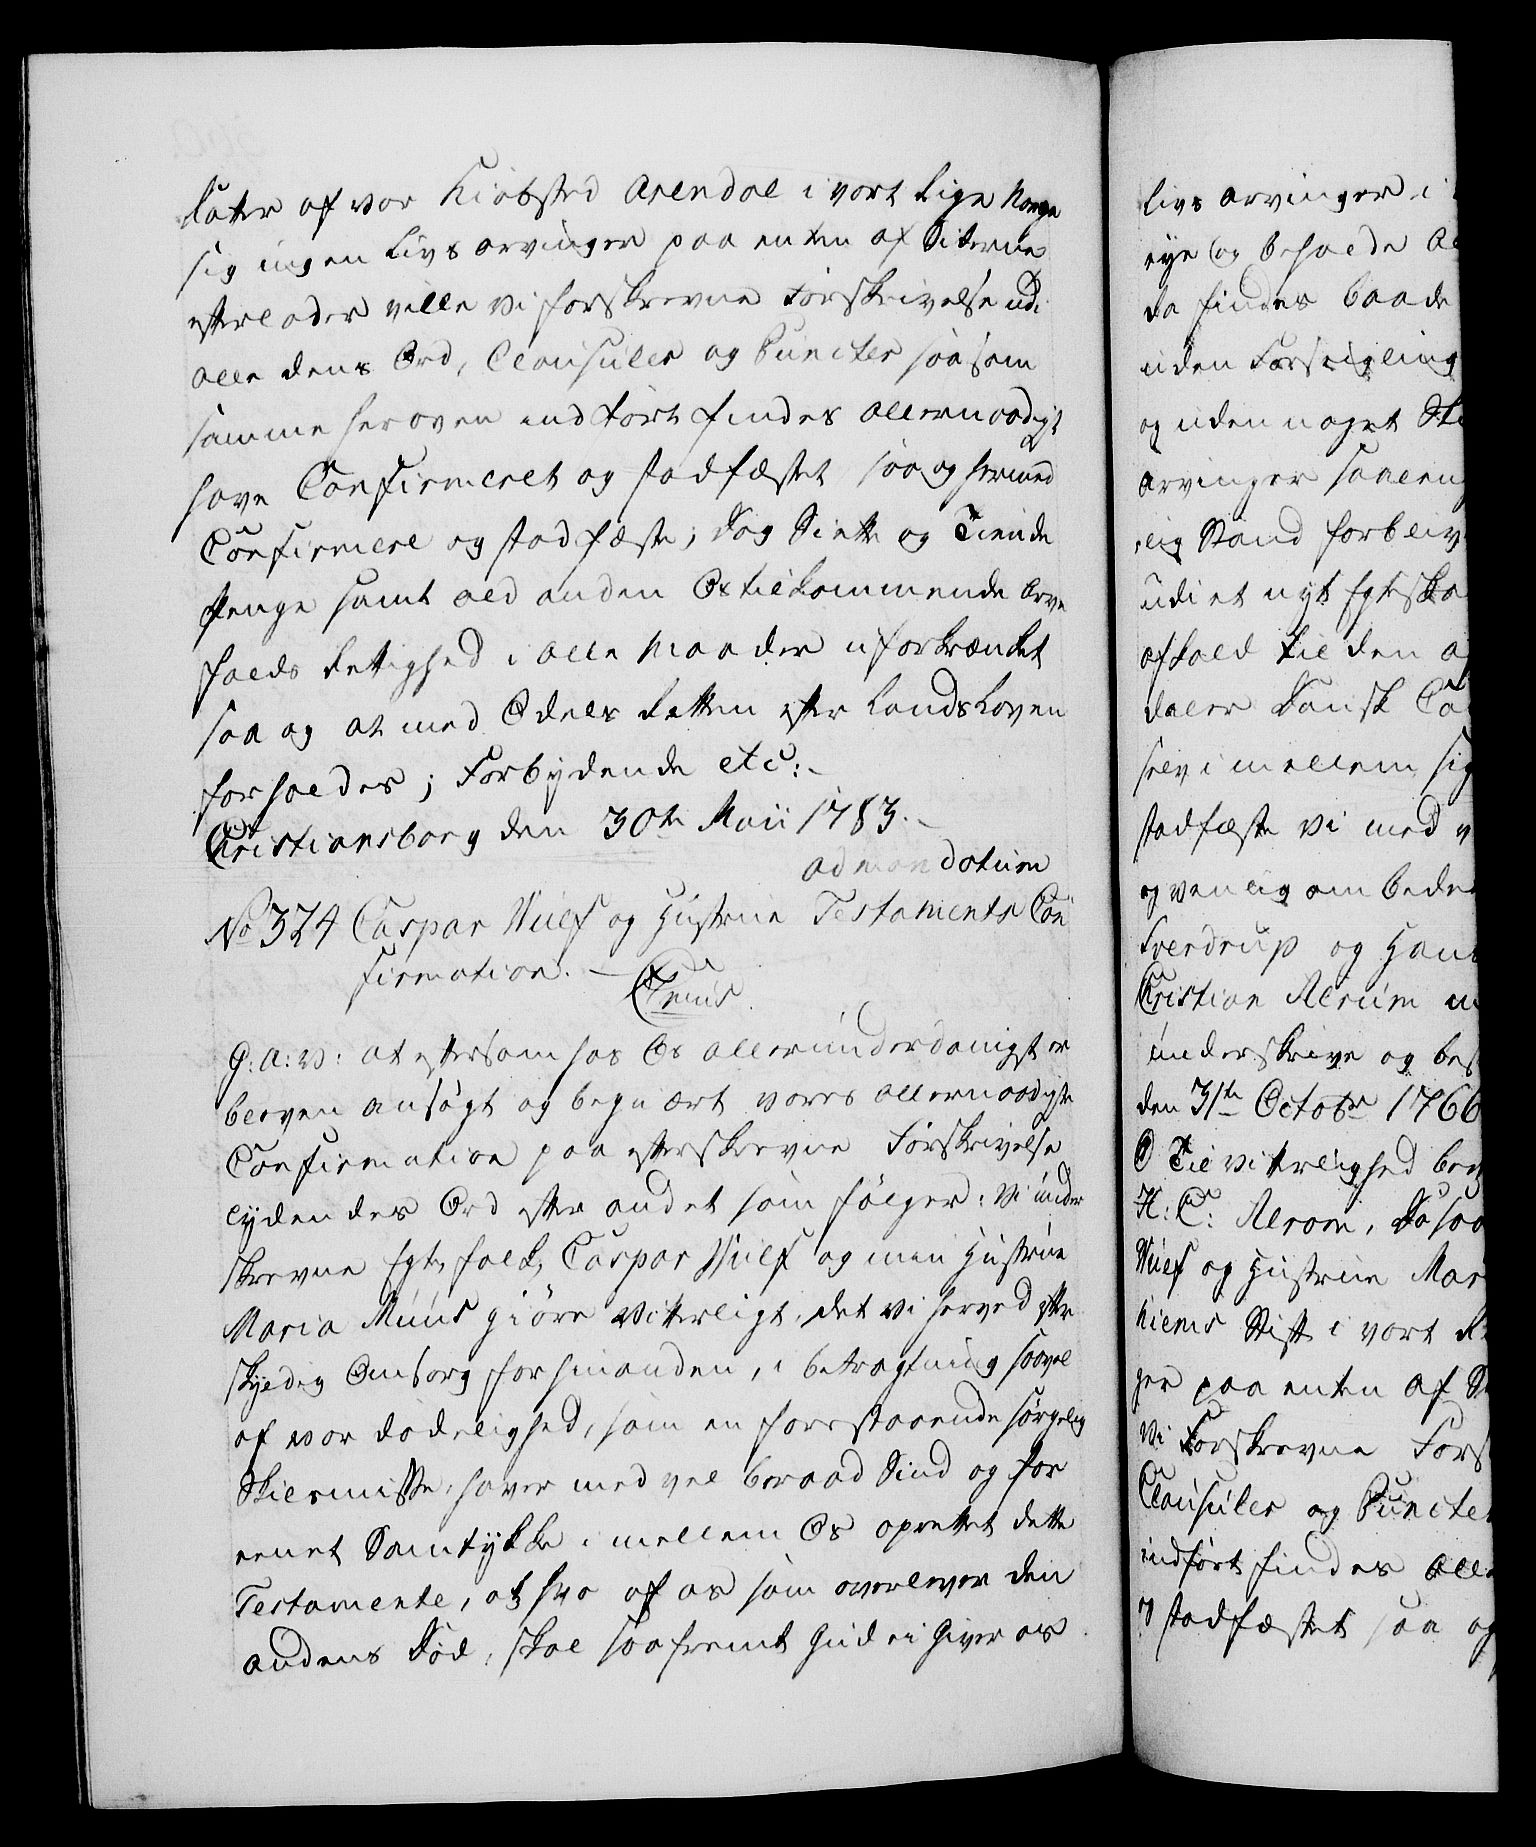 datter af vor Kiøbsted Arendal i vort Rige Norge
sig ingen Livs arvinger paa enten af Siderne
efterlader ville vi forskrevne Forskrivelse udi
alle dens Ord, Clausuler og Puncter saasom
samme her oven indført findes allernaadigst
have Confirmeret og stadfæstet saa og hermed
Confirmere og stadfæste; dog Siette og Tiende
Penge samt ald anden Os tilkommende Arve
falds Rettighed i alle Maader uforkrænket
saa og at med Odels Retten efter Lands Loven
forholdes; Forbydende etc:
Christiansborg den 30te Maii 1783.
ad mandatum
No 324 Caspar Wulf og Hustrue Testaments Con
firmation.
G: A: V: at eftersom hos Os allerunderdanigst er
bleven ansøgt og begiært vores allernaadigste
Confirmation paa efterskrevne Forskrivelse
lydendes Ord efter andet som følger: Vi under
skrevne Egte folk, Caspar Wulf og min Hustrue
Maria Muus giøre vitterligt, det vi herved efter
skyldig Omsorg for hinanden, i betragtning saavel
af vor dødelighed, som en forestaaende sørgelig
Skilsmisse, haver med vel beraad Sind og for
eenet Samtykke i mellem Os oprettet dette
Testamente, at hvo af os som overlever den
andens Død, skal saafremt Gud ei giver os
Livs arvinger i
eye og beholde
da findes baade
uden Forseigling
og uden noget
arvinger
lig Stand forbliv
udi et nyt Egteska
afkald til den
daler Dansk
selv i mellem sig
stadfæste vi med
og venlig ombeder
Sverdrup og Hans
Christian Alrum
underskrive og
den 31te Octobr 1766
Til vitterlighed
H: C: Alrom, Da saa
Wulf og Hustrue Mar
hiems Stift i vort
ger paa enten af
vi Forskrevne Forsk
Clausuler og Puncter
indført findes alle
stadfæstet saa og